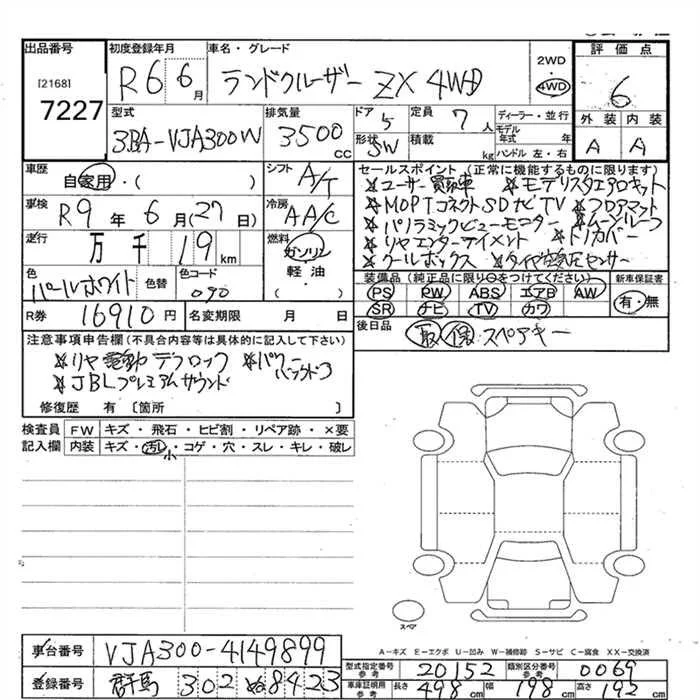 出品番号
[2168]
7227
初度登録年月
R6 6月
車名・グレード
ランドクルーザー ZX 4WD
2WD
・
4WD
評価点
6
外装 内装
A A
型式
3BA-VJA300W
排気量
3500 cc
ドア 5
定員 7人
ディーラー・並行
モデル年式 年
ハンドル 左・右
形状 SW
積載 kg
車歴
自家用・( )
シフト A/T
車検
R9年6月(27日)
冷房 AA/C
走行
万千19km
燃料
ガソリン
軽油・
( )
色
パールホワイト
色替
色コード
090
R券 16910円
名変期限 月 日
セールスポイント (正常に機能するものに限ります)
★ユーザー買取車 ★モデリスタエアロキット
★MOPTコネクトSDナビTV ★フロアマット
★パノラミックビューモニター ★ムーンルーフ
★リヤエンターテイメント ★トノカバー
★クールボックス ★タイヤ空気圧センサー
装備品 (純正品に限り○をつけてください)
新車保証書
PS PW ABS エアB AW
有・無
SR ナビ TV カワ
後日品
取 保 スペアキー
注意事項申告欄(不具合内容等は具体的に記入して下さい)
★リヤ電動デフロック ★パワーバックドア
★JBLプレミアムサウンド
修復歴 有〔箇所 〕
検査員記入欄
FW キズ・飛石・ヒビ割・リペア跡・×要
内装 キズ・汚れ・コゲ・穴・スレ・キレ・破レ
小
スペア
A-キズ E-エクボ U-凹み W-補修跡 S-サビ C-腐食 XX-交換済
車台番号 VJA300-4149899
型式指定番号 参考 20152
類別区分番号 参考 0069
登録番号 群馬 302 ぬ 8423
車庫証明用 参考 長さ 498cm 幅 198cm 高さ 192cm